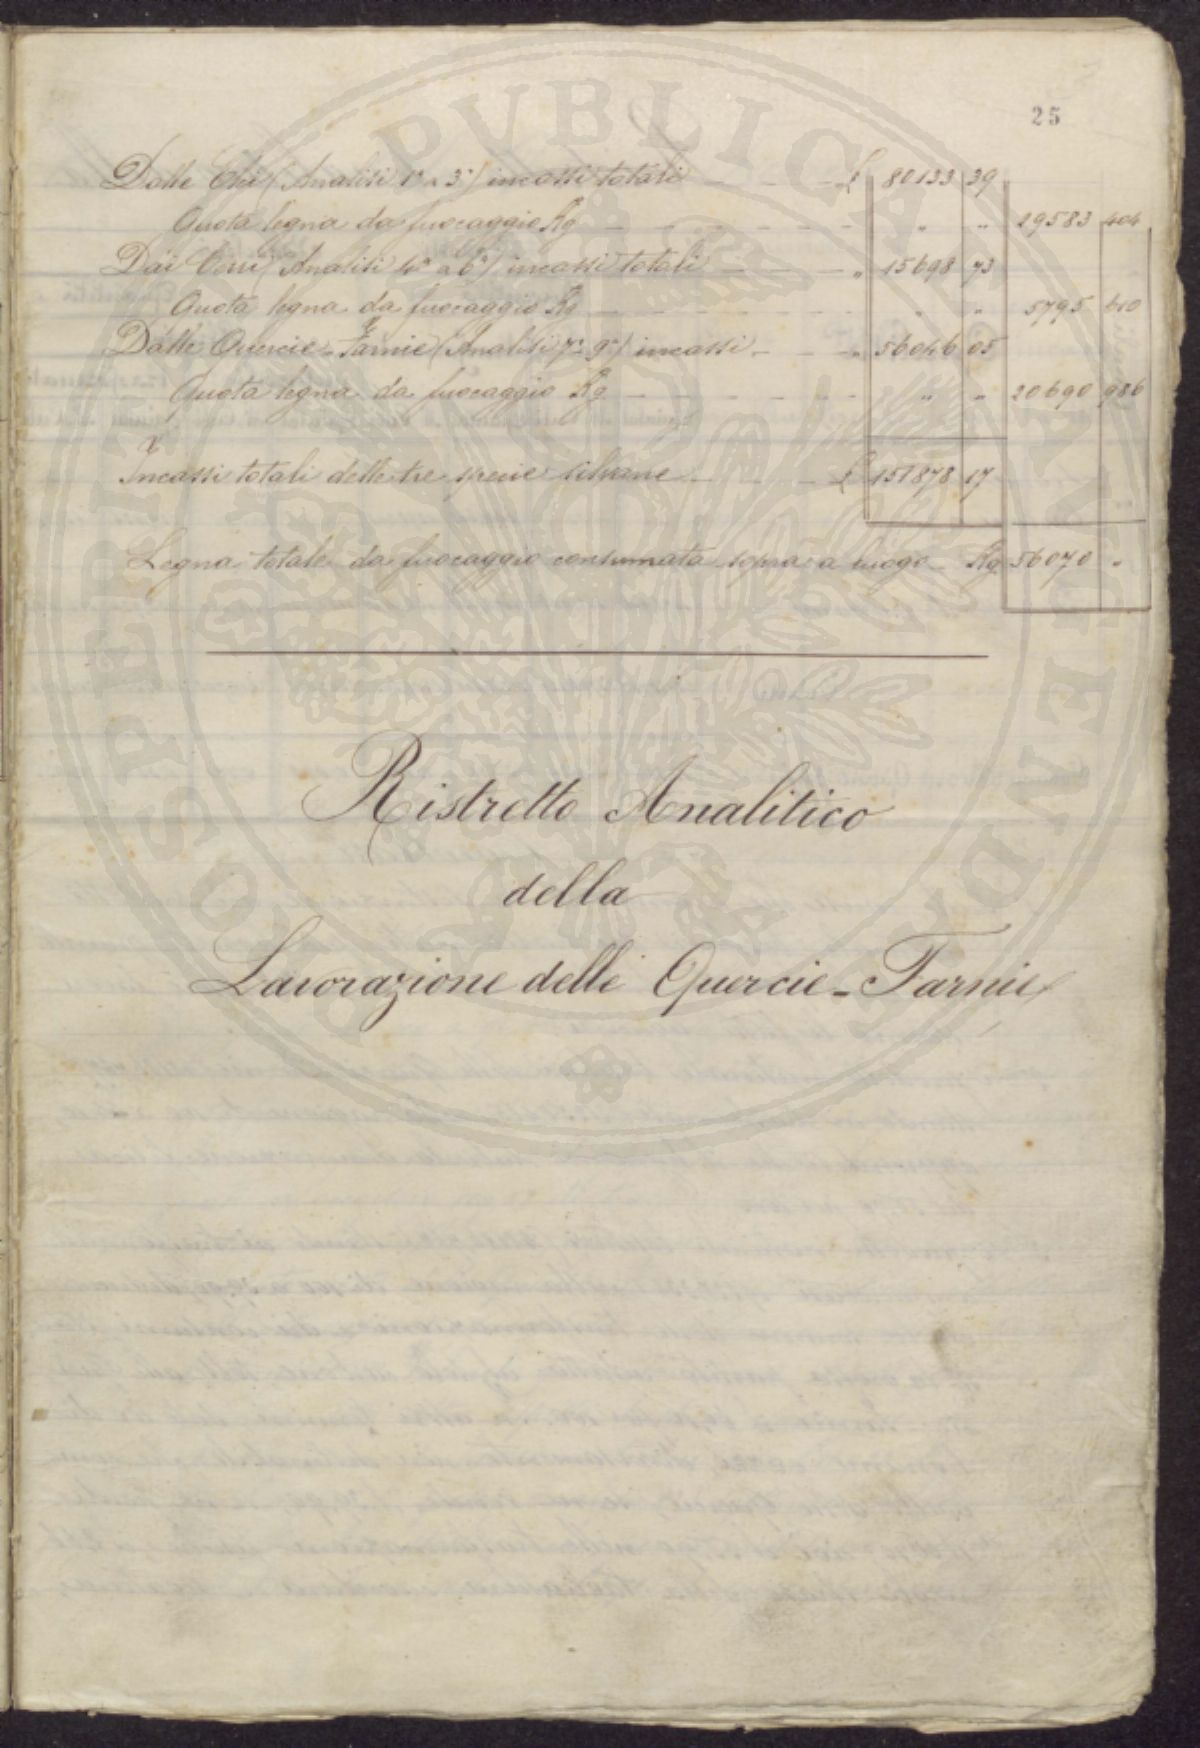 25
Dalle Elci (Analisi 1ª a 3ª) incassi totali £ 80133 39
Quota legna da fuocaggio Kg " " 29583 404
Dai Cerri (Analisi 4ª a 6ª) incassi totali " 15698 73
Quota legna da fuocaggio Kg " " 5795 610
Dalle Quercie-Farnie (Analisi 7ª 9ª) incassi " 56046 05
Quota legna da fuocaggio Kg " " 20690 986
Incassi totali delle tre specie silvane £ 151878 17
Legna totale da fuocaggio consumata sopra a luogo Kg 56070 "
Ristretto Analitico
della
Lavorazione delle Quercie-Farnie
PUBLICAE UTILITATI